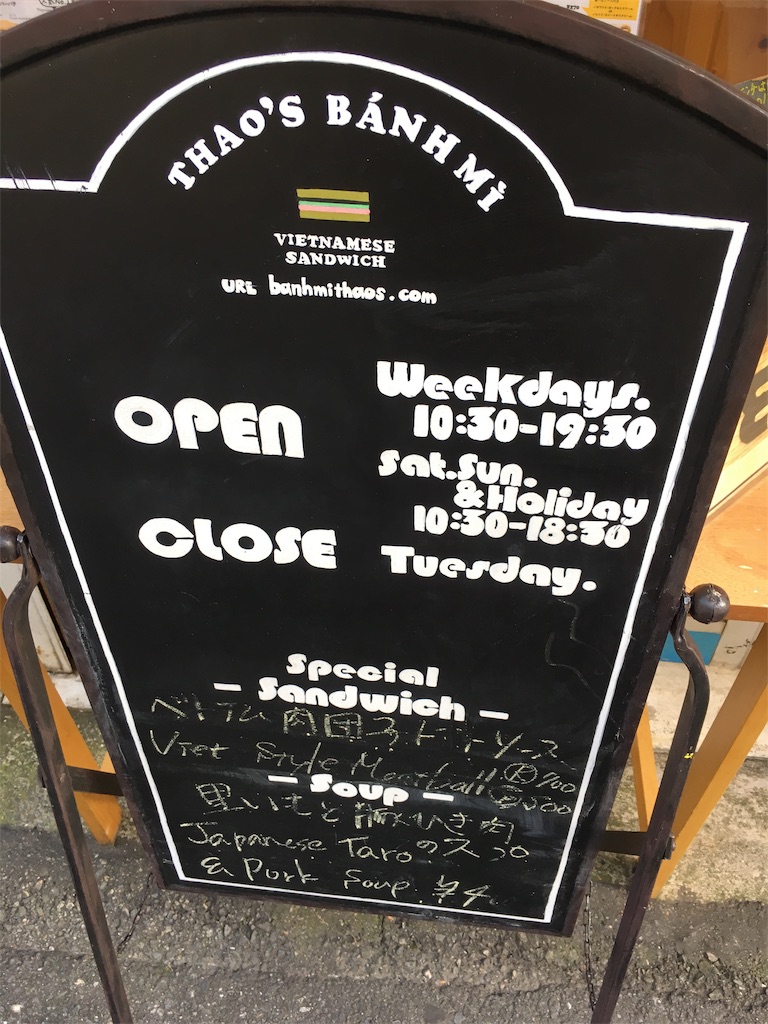 THAO'S BÁNH MÌ
VIETNAMESE
SANDWICH
URL banhmithaos.com
OPEN
Weekdays.
10:30-19:30
Sat.Sun.
&Holiday
10:30-18:30
CLOSE
Tuesday.
Special
- Sandwich -
ベトナム 肉団子トマトソース
Viet Style Meatball
- Soup -
里いもと豚ひき肉
Japanese Taro のスープ
& Pork Soup